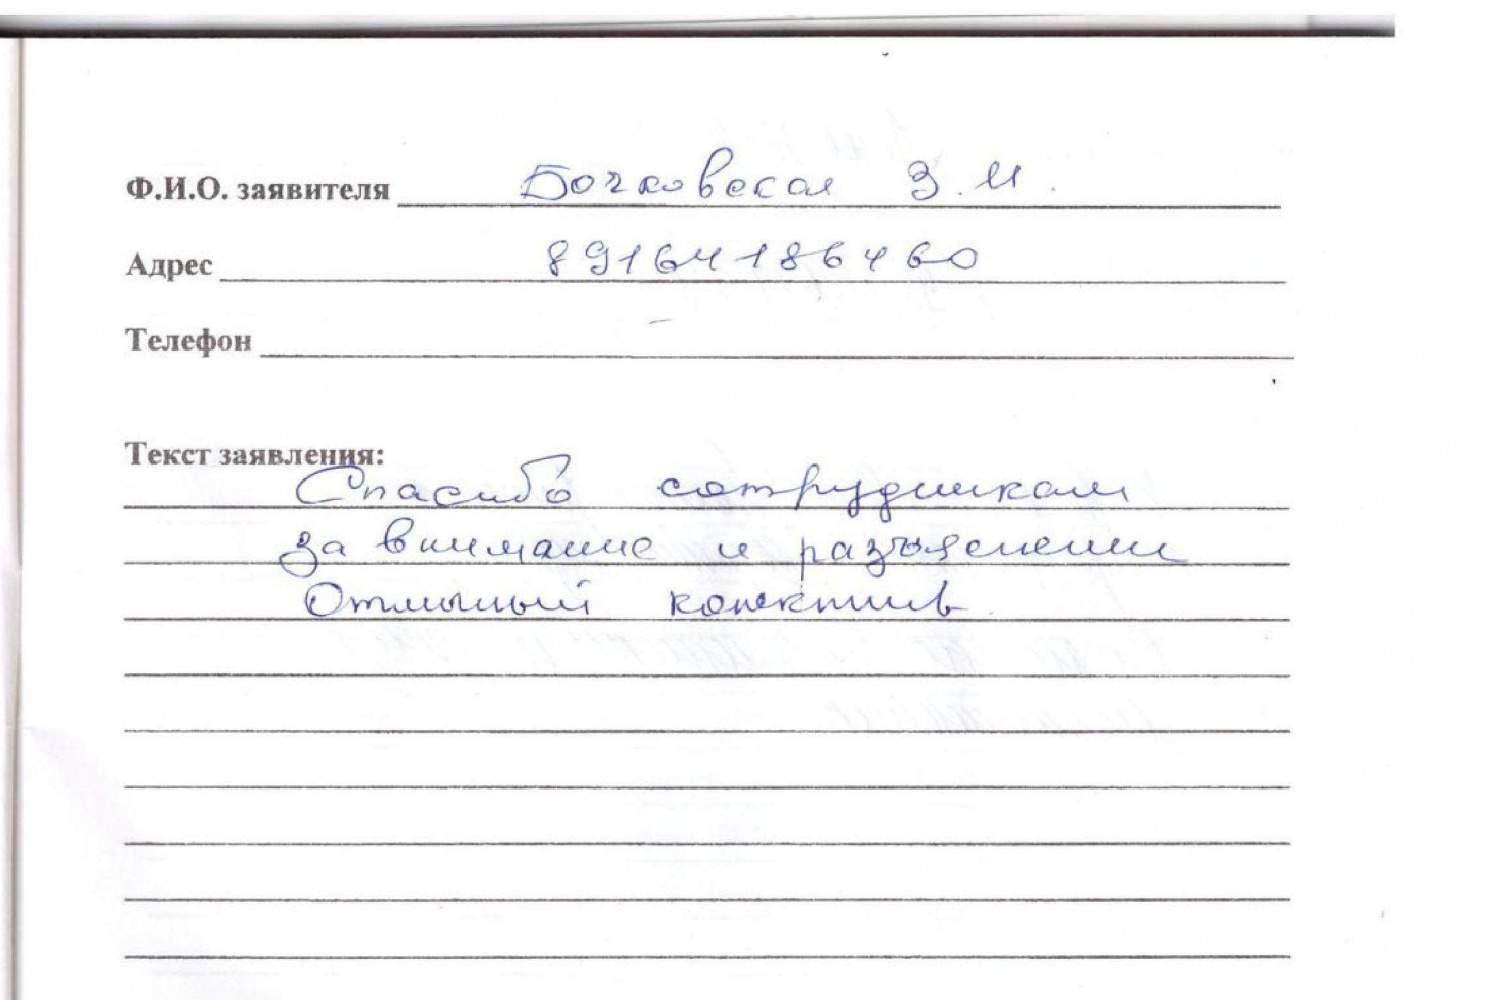 Ф.И.О. заявителя Бочковская З.И.
Адрес 89164186460
Телефон
Текст заявления:
Спасибо сотрудникам
за внимание и разъяснении
Отличный коллектив